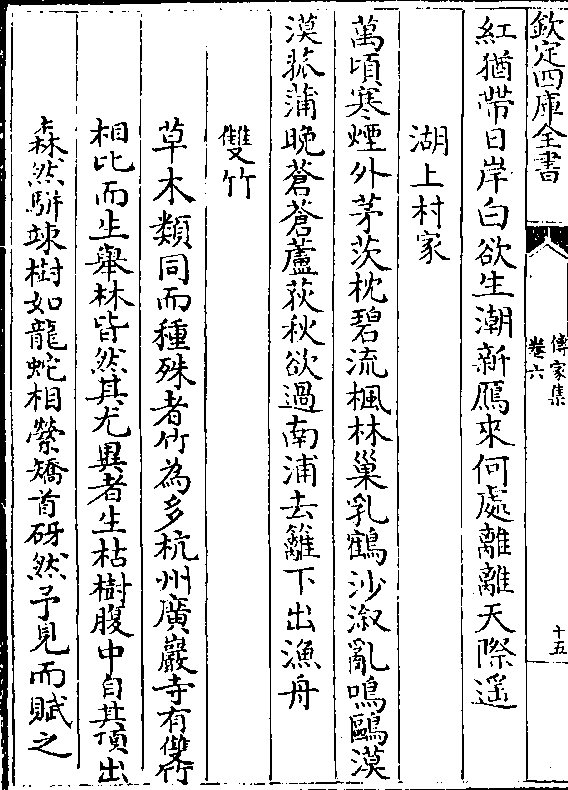 欽定四庫全書
傳家集
卷六
十五
紅猶帶日岸白欲生潮新鴈來何處離離天際遥
湖上村家
萬頃寒煙外茅茨枕碧流楓林巢乳鶴沙溆亂鳴鷗漠
漠菰蒲晚蒼蒼蘆荻秋欲過南浦去籬下出漁舟
雙竹
草木類同而種殊者竹為多杭州廣巖寺有雙竹
相比而生舉林皆然其尤異者生枯樹腹中自其頂出
森然駢竦樹如龍蛇相縈矯首砑然予見而賦之